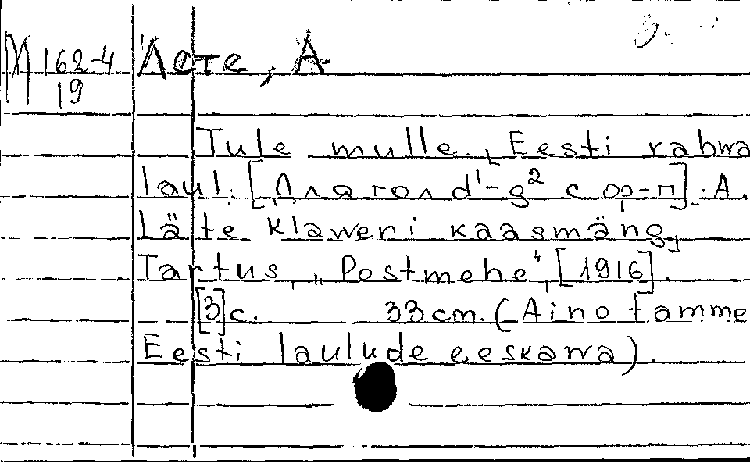 М 162-4 Лете, А
19
Tule mulle. Eesti rahwa
laul. [Для гол d¹-g² с ор-п]. А.
Läte klaweri kaasmäng.
Tartus, „Postmehe“, [1916].
[3]с. 33 cm. (Aino Tamme
Eesti laulude eeskawa).